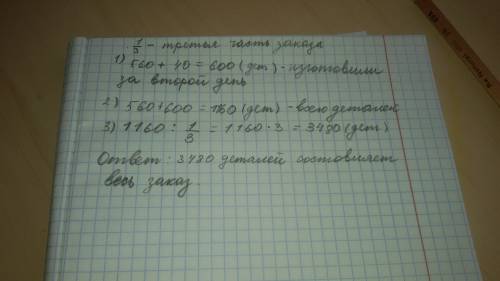 1/3 - третья часть заказа
1) 560 + 40 = 600 (дет) - изготовили
за второй день
2) 560 + 600 = 1160 (дет) - всего деталей
3) 1160 : 1/3 = 1160 · 3 = 3480 (дет)
Ответ: 3480 деталей составляет
весь заказ.